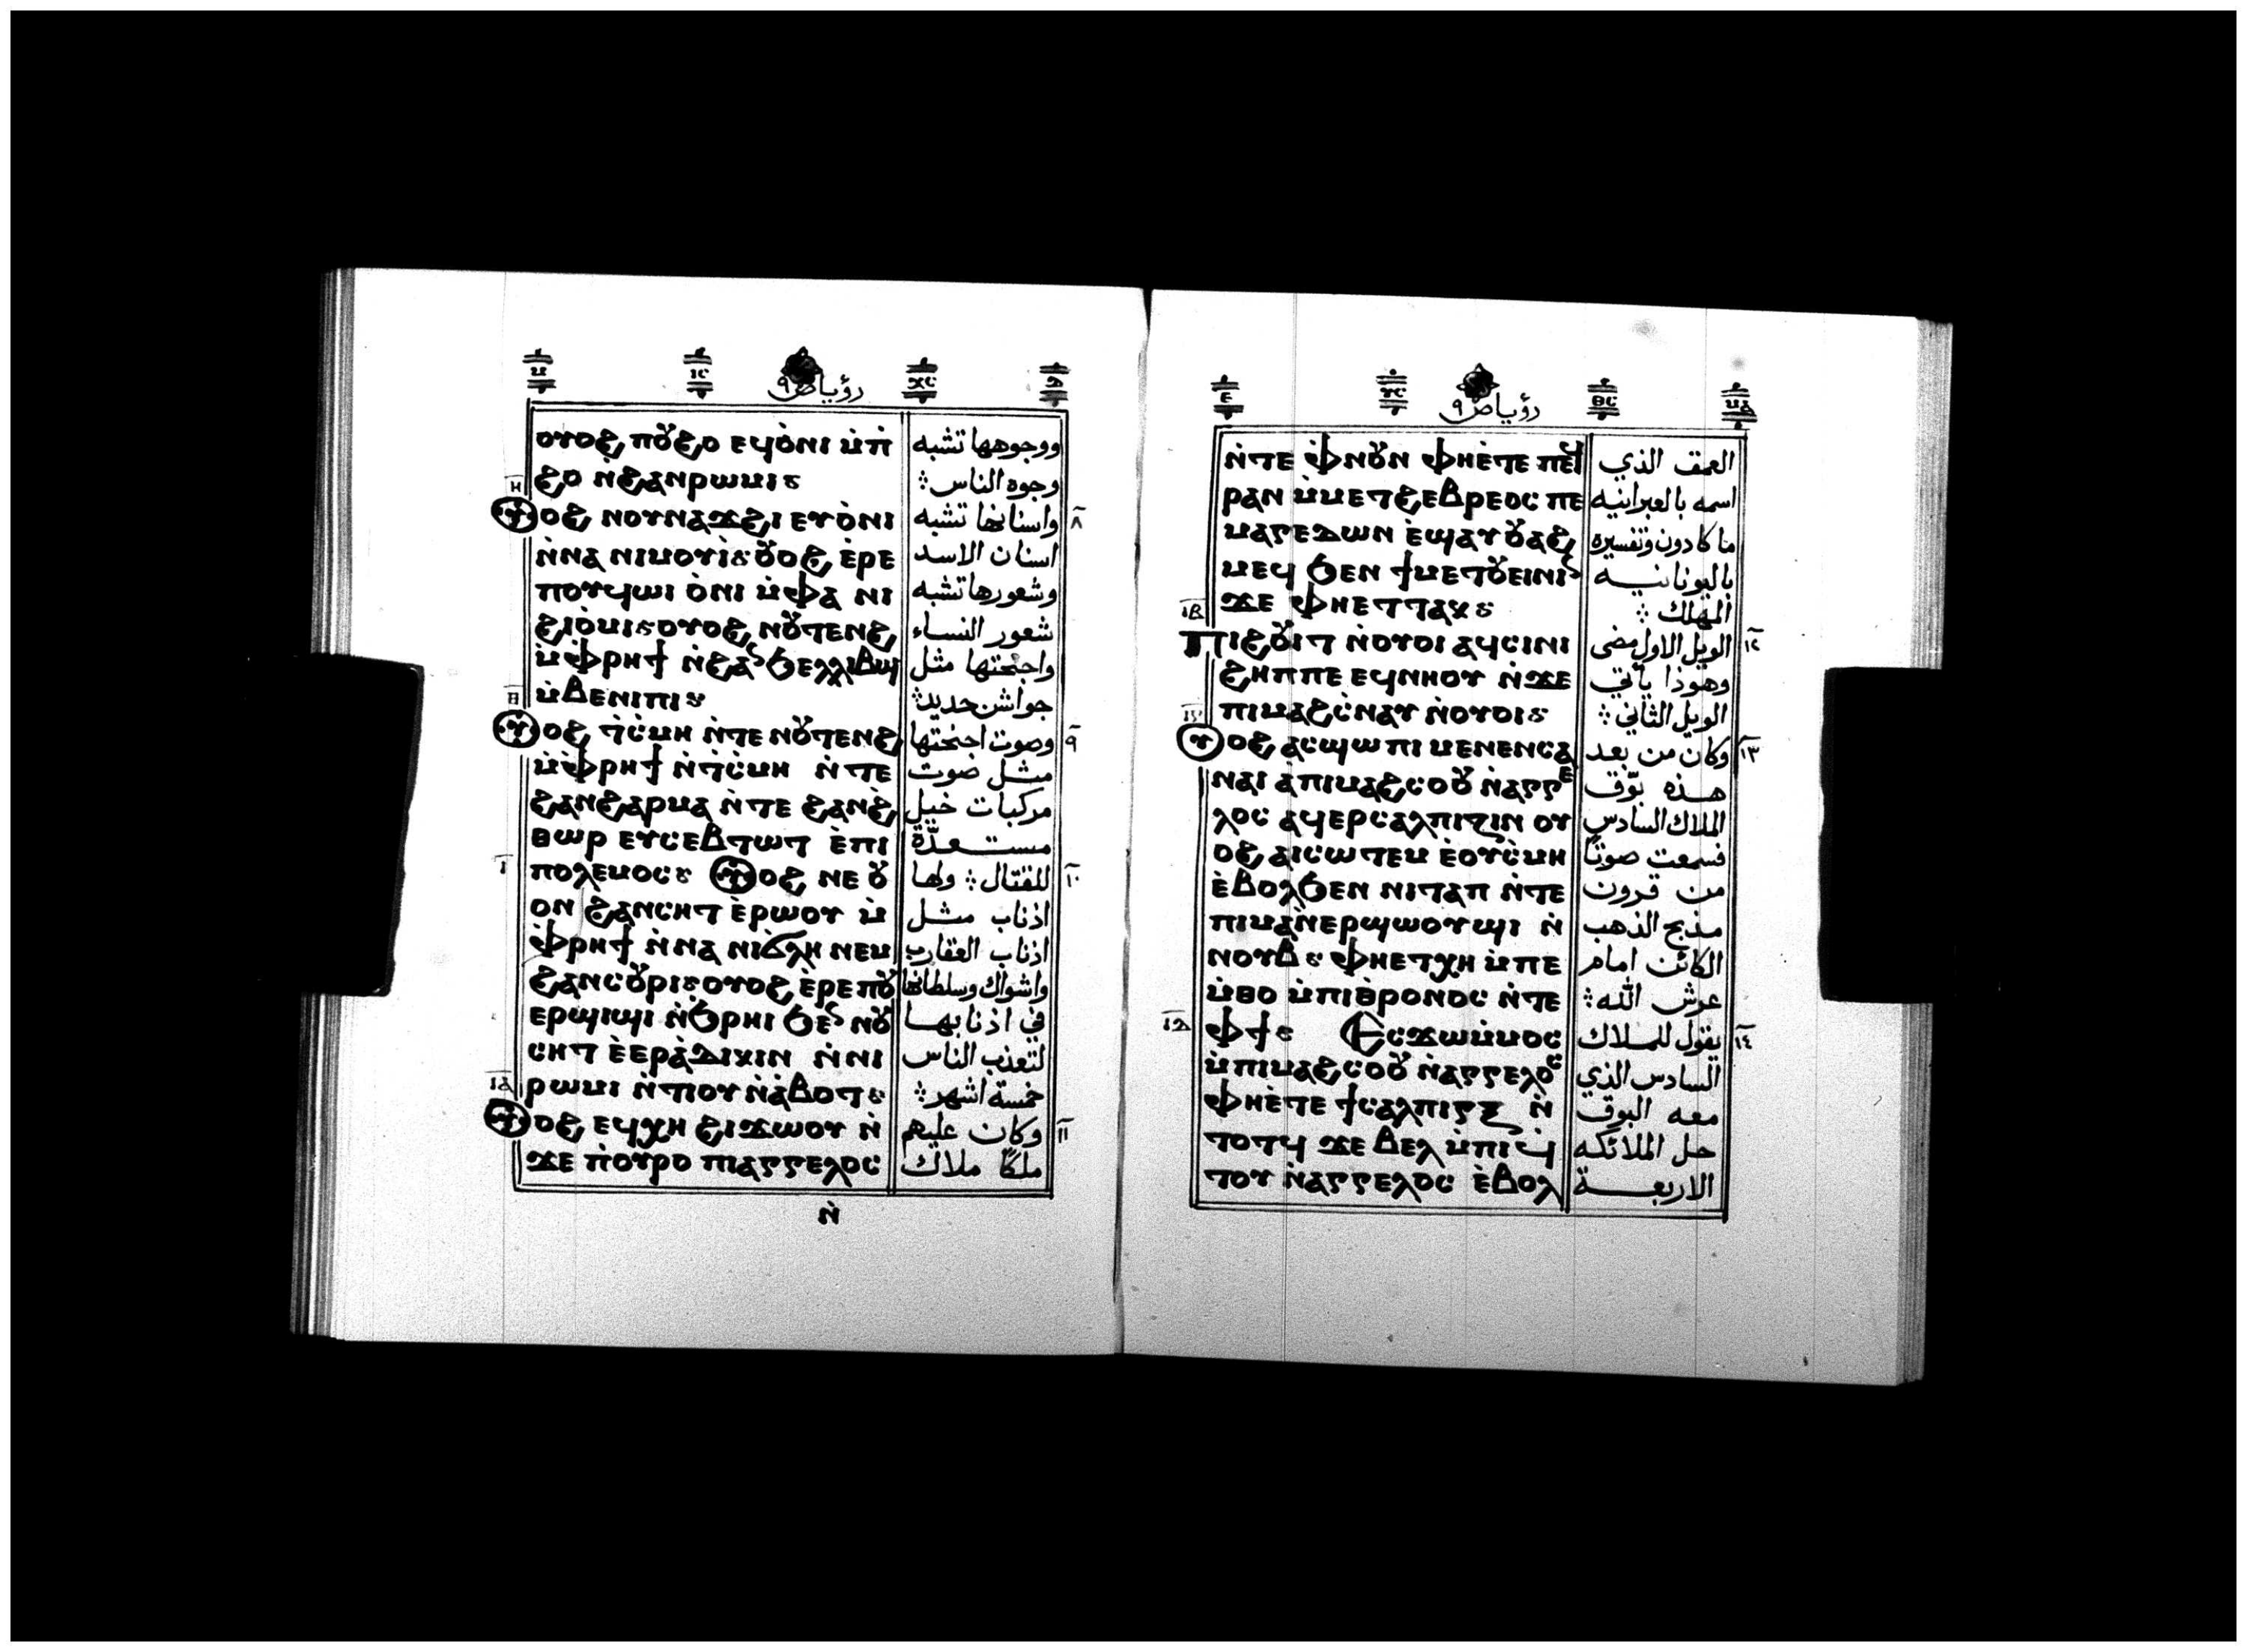 رؤيا ص٩
ⲟⲩⲟϩ ⲡⲟⲩϩⲟ ⲉϥⲟ̀ⲛⲓ ⲙ̀ⲡ̀
ϩⲟ ⲛ̀ϩⲁⲛⲣⲱⲙⲓ
ⲟⲩⲟϩ ⲛⲟⲩⲛⲁϫϩⲓ ⲉⲩⲟ̀ⲛⲓ
ⲛ̀ⲛⲁ ⲛⲓⲙⲟⲩⲓ̀ ⲟⲩⲟϩ ⲉ̀ⲣⲉ
ⲡⲟⲩϥⲱⲓ ⲟ̀ⲛⲓ ⲙ̀ⲫⲁ ⲛⲓ
ϩⲓⲟ̀ⲙⲓ ⲟⲩⲟϩ ⲛⲟⲩⲧⲉⲛϩ
ⲙ̀ⲫⲣⲏϯ ⲛ̀ϩⲁⲛϧⲉⲗⲗⲓⲃϣ
ⲙ̀ⲃⲉⲛⲓⲡⲓ
ⲟⲩⲟϩ ⲧ̀ⲥ̀ⲙⲏ ⲛ̀ⲧⲉ ⲛⲟⲩⲧⲉⲛϩ
ⲙ̀ⲫⲣⲏϯ ⲛ̀ⲧ̀ⲥ̀ⲙⲏ ⲛ̀ⲧⲉ
ϩⲁⲛϩⲁⲣⲙⲁ ⲛ̀ⲧⲉ ϩⲁⲛϩ̀
ⲑⲱⲣ ⲉⲩⲥⲉⲃⲧⲱⲧ ⲉ̀ⲡⲓ
ⲡⲟⲗⲉⲙⲟⲥ ⲟⲩⲟϩ ⲛⲉ ⲟⲩ
ⲟⲛ ϩⲁⲛⲥⲏⲧ ⲉ̀ⲣⲱⲟⲩ ⲙ̀
ⲫ̀ⲣⲏϯ ⲛ̀ⲛⲁ ⲛⲓϭⲗⲏ ⲛⲉⲙ
ϩⲁⲛⲥⲟⲩⲣⲓ ⲟⲩⲟϩ ⲉ̀ⲣⲉ ⲡⲟⲩ
ⲉⲣϣⲓϣⲓ ⲛ̀ϧⲣⲏⲓ ϧⲉⲛ ⲛⲟⲩ
ⲥⲏⲧ ⲉ̀ⲉⲣⲁ̀ⲇⲓⲕⲓⲛ ⲛ̀ⲛⲓ
ⲣⲱⲙⲓ ⲛ̀ⲡⲟⲩ ⲛ̀ⲁ̀ⲃⲟⲧ
ⲟⲩⲟϩ ⲉϥⲭⲏ ϩⲓϫⲱⲟⲩ ⲛ̀
ϫⲉ ⲡ̀ⲟⲩⲣⲟ ⲡⲓⲁⲅⲅⲉⲗⲟⲥ
ⲛ̀
ووجوهها تشبه
وجوه الناس
٨ واسنانها تشبه
اسنان الاسد
وشعورها تشبه
شعور النساء
واجنحتها مثل
جواشن حديد
٩ وصوت اجنحتها
مثل صوت
مركبات خيل
مستعدّة
للقتال ١٠ ولها
اذناب مثل
اذناب العقارب
واشواك وسلطانها
في اذنابها
لتعذب الناس
خمسة اشهر
١١ وكان عليهم
ملكًا ملاك
رؤيا ص٩
ⲛ̀ⲧⲉ ⲫ̀ⲛⲟⲩⲛ ⲫⲏⲉ̀ⲧⲉ ⲡⲉϥ
ⲣⲁⲛ ⲙ̀ⲙⲉⲧϩⲉⲃⲣⲉⲟⲥ ⲡⲉ
ⲙⲁⲅⲉⲇⲱⲛ ⲉ̀ϣⲁⲩⲟⲩⲁϩ
ⲙⲉϥ ϧⲉⲛ ϯⲙⲉⲧⲟⲩⲉⲓⲛⲓⲛ
ϫⲉ ⲫⲏⲉⲧⲧⲁⲕⲟ
ⲡⲓϩⲟⲩⲓⲧ ⲛ̀ⲟⲩⲟⲓ ⲁϥⲥⲓⲛⲓ
ϩⲏⲡⲡⲉ ⲉϥⲛⲏⲟⲩ ⲛ̀ϫⲉ
ⲡⲓⲙⲁϩⲥ̀ⲛⲁⲩ ⲛ̀ⲟⲩⲟⲓ
ⲟⲩⲟϩ ⲁⲥϣⲱⲡⲓ ⲙⲉⲛⲉⲛⲥⲁ
ⲛⲁⲓ ⲁ̀ⲡⲓⲙⲁϩⲥⲟⲟⲩ ⲛ̀ⲁⲅⲅⲉ
ⲗⲟⲥ ⲁϥⲉⲣⲥⲁⲗⲡⲓⲍⲓⲛ ⲟⲩ
ⲟϩ ⲁⲓⲥⲱⲧⲉⲙ ⲉ̀ⲟⲩⲥ̀ⲙⲏ
ⲉ̀ⲃⲟⲗϧⲉⲛ ⲛⲓⲧⲁⲡ ⲛ̀ⲧⲉ
ⲡⲓⲙⲁⲛ̀ⲉⲣϣⲱⲟⲩϣⲓ ⲛ̀
ⲛⲟⲩⲃ ⲫⲏⲉⲧⲭⲏ ⲙ̀ⲡⲉ
ⲙ̀ⲑⲟ ⲙ̀ⲡⲓⲑⲣⲟⲛⲟⲥ ⲛ̀ⲧⲉ
ⲫϯ Ⲉⲥϫⲱⲙ̀ⲙⲟⲥ
ⲙ̀ⲡⲓⲙⲁϩⲥⲟⲟⲩ ⲛ̀ⲁⲅⲅⲉⲗⲟⲥ
ⲫⲏⲉ̀ⲧⲉ ϯⲥⲁⲗⲡⲓⲅⲝ ⲛ̀
ⲧⲟⲧϥ ϫⲉ ⲃⲉⲗ ⲙ̀ⲡⲓϥ̀
ⲧⲟⲩ ⲛ̀ⲁⲅⲅⲉⲗⲟⲥ ⲉ̀ⲃⲟⲗ
العمق الذي
اسمه بالعبرانيه
ماكادون وتفسيره
باليونانيه
المهلك
١٢ الويل الاول مضى
وهوذا يأتي
الويل الثاني
١٣ وكان من بعد
هذه بوّق
الملاك السادس
فسمعت صوتًا
من قرون
مذبح الذهب
الكائن امام
عرش الله
١٤ يقول للملاك
السادس الذي
معه البوق
حل الملائكه
الاربعة